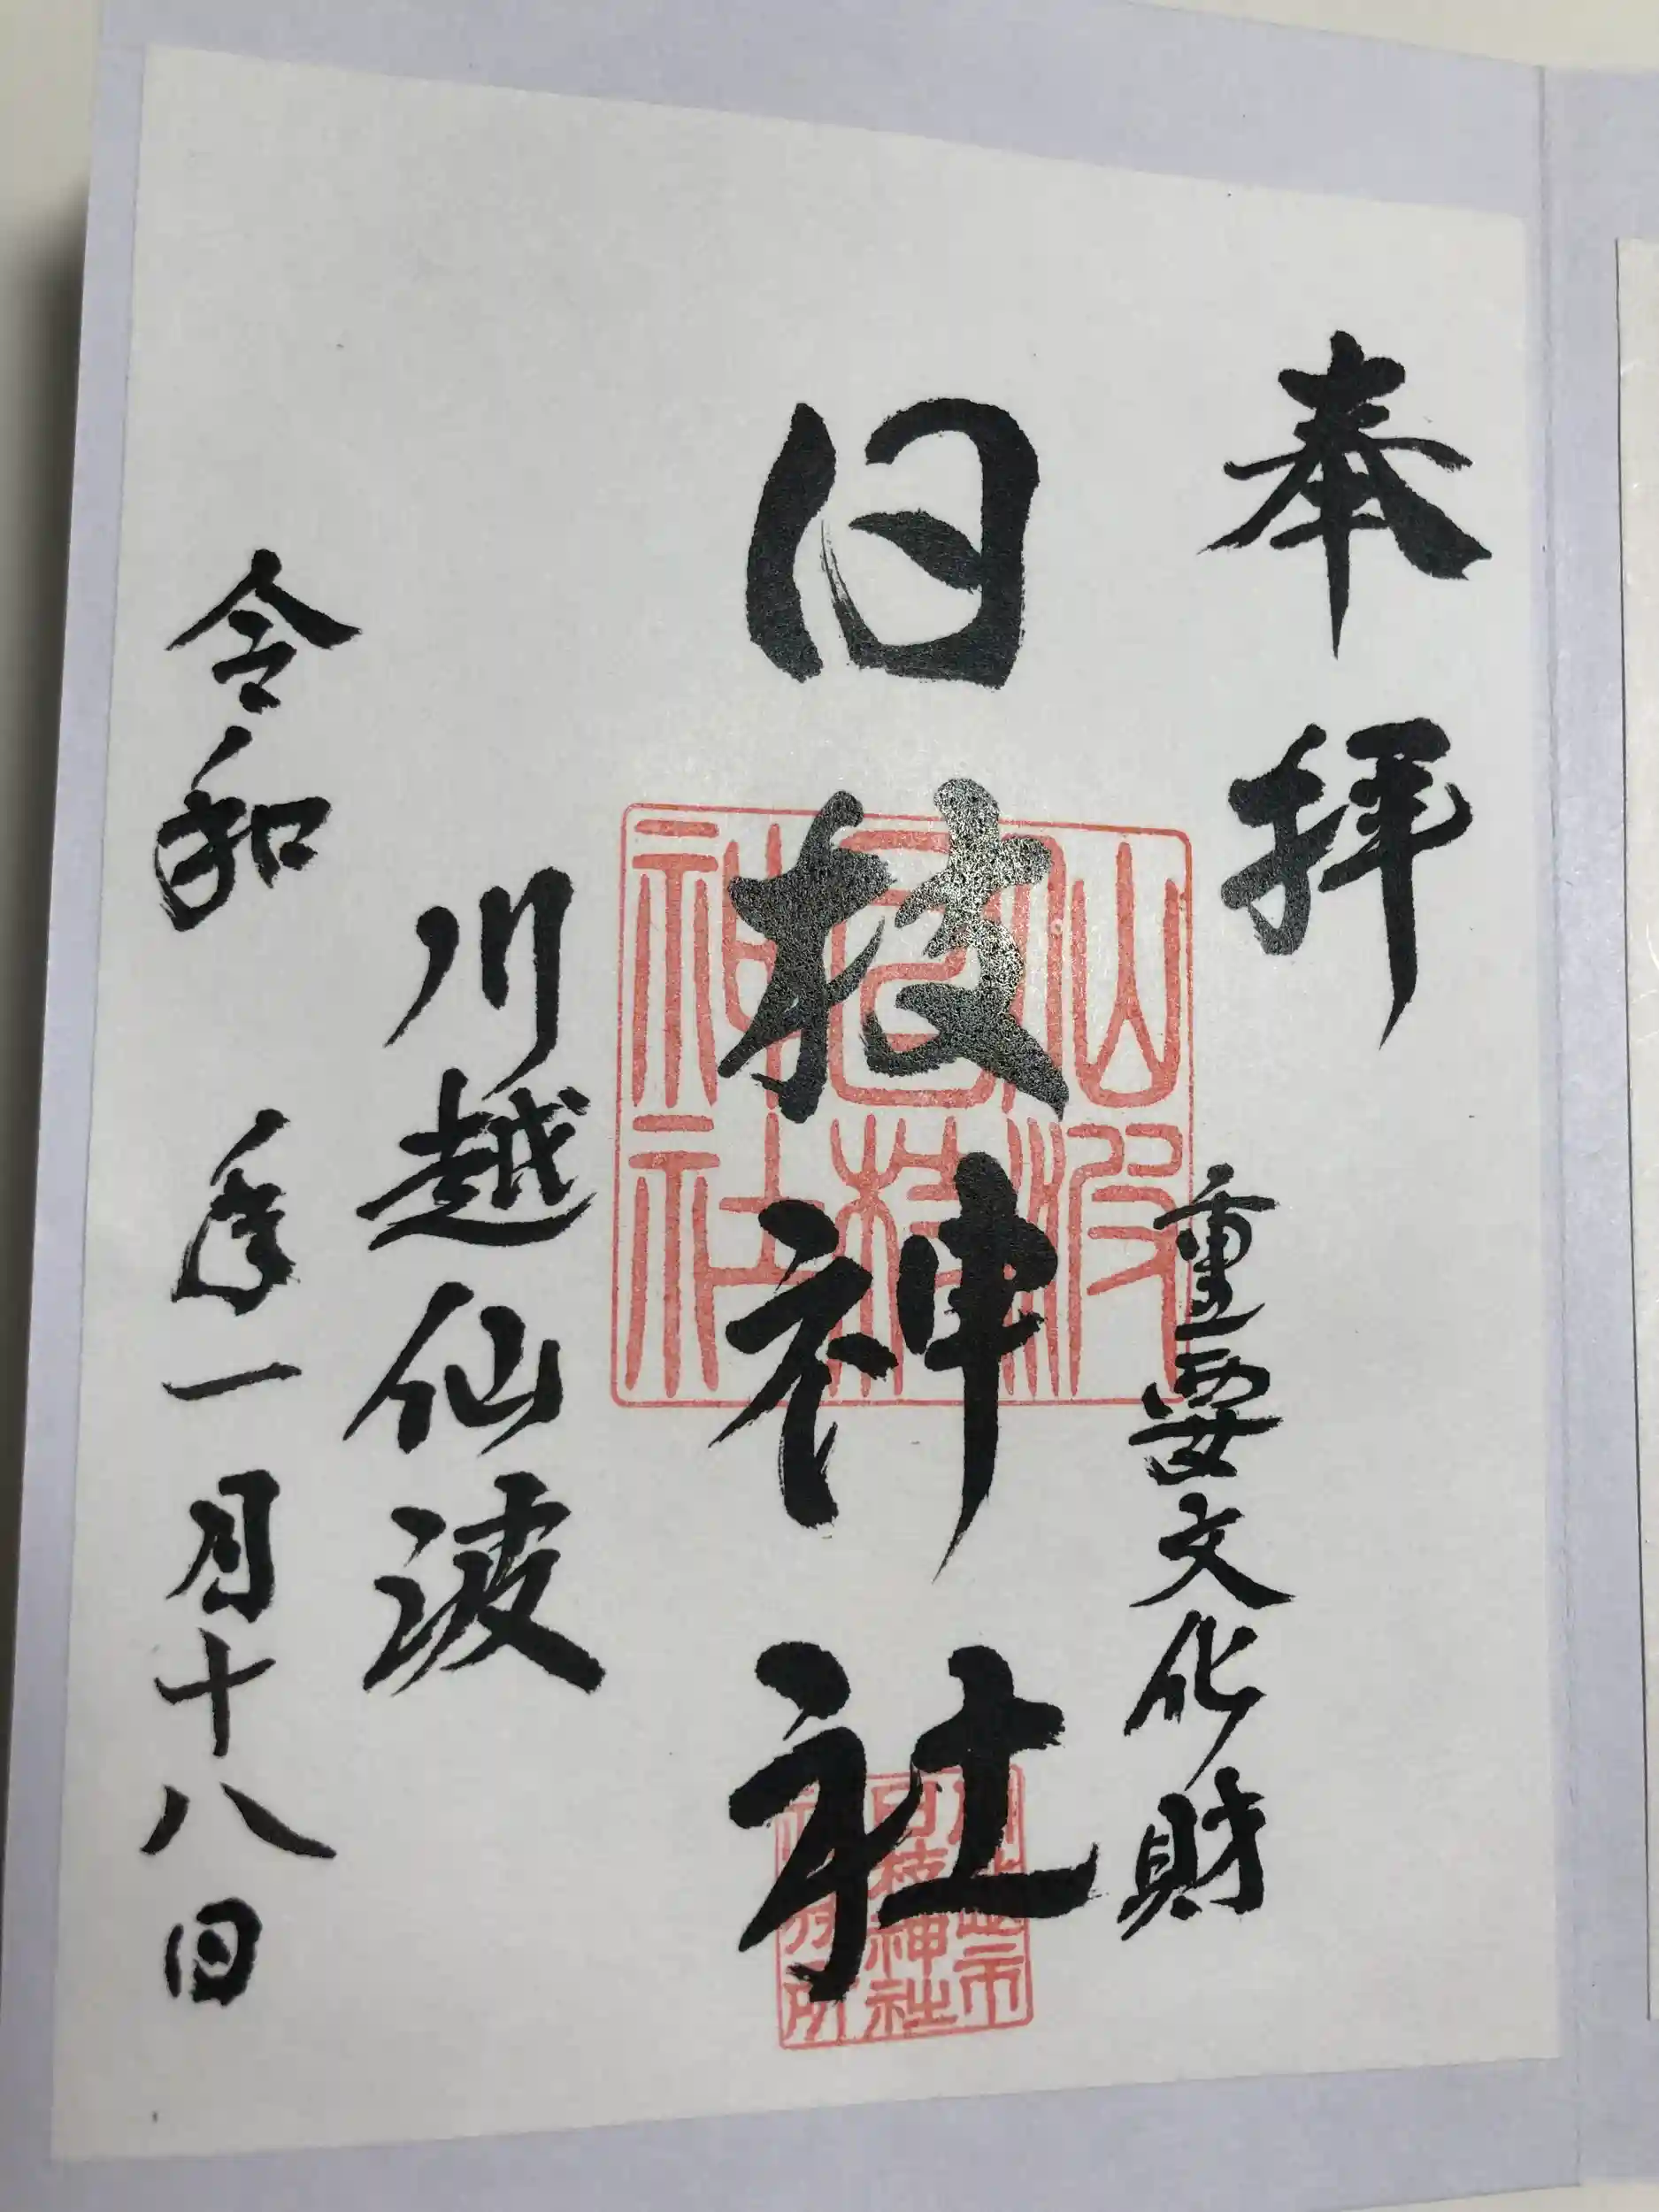 奉拝
重要文化財
日枝神社
仙波
日枝
神社
川越市
日枝神社
社務所
川越仙波
令和 年一月十八日